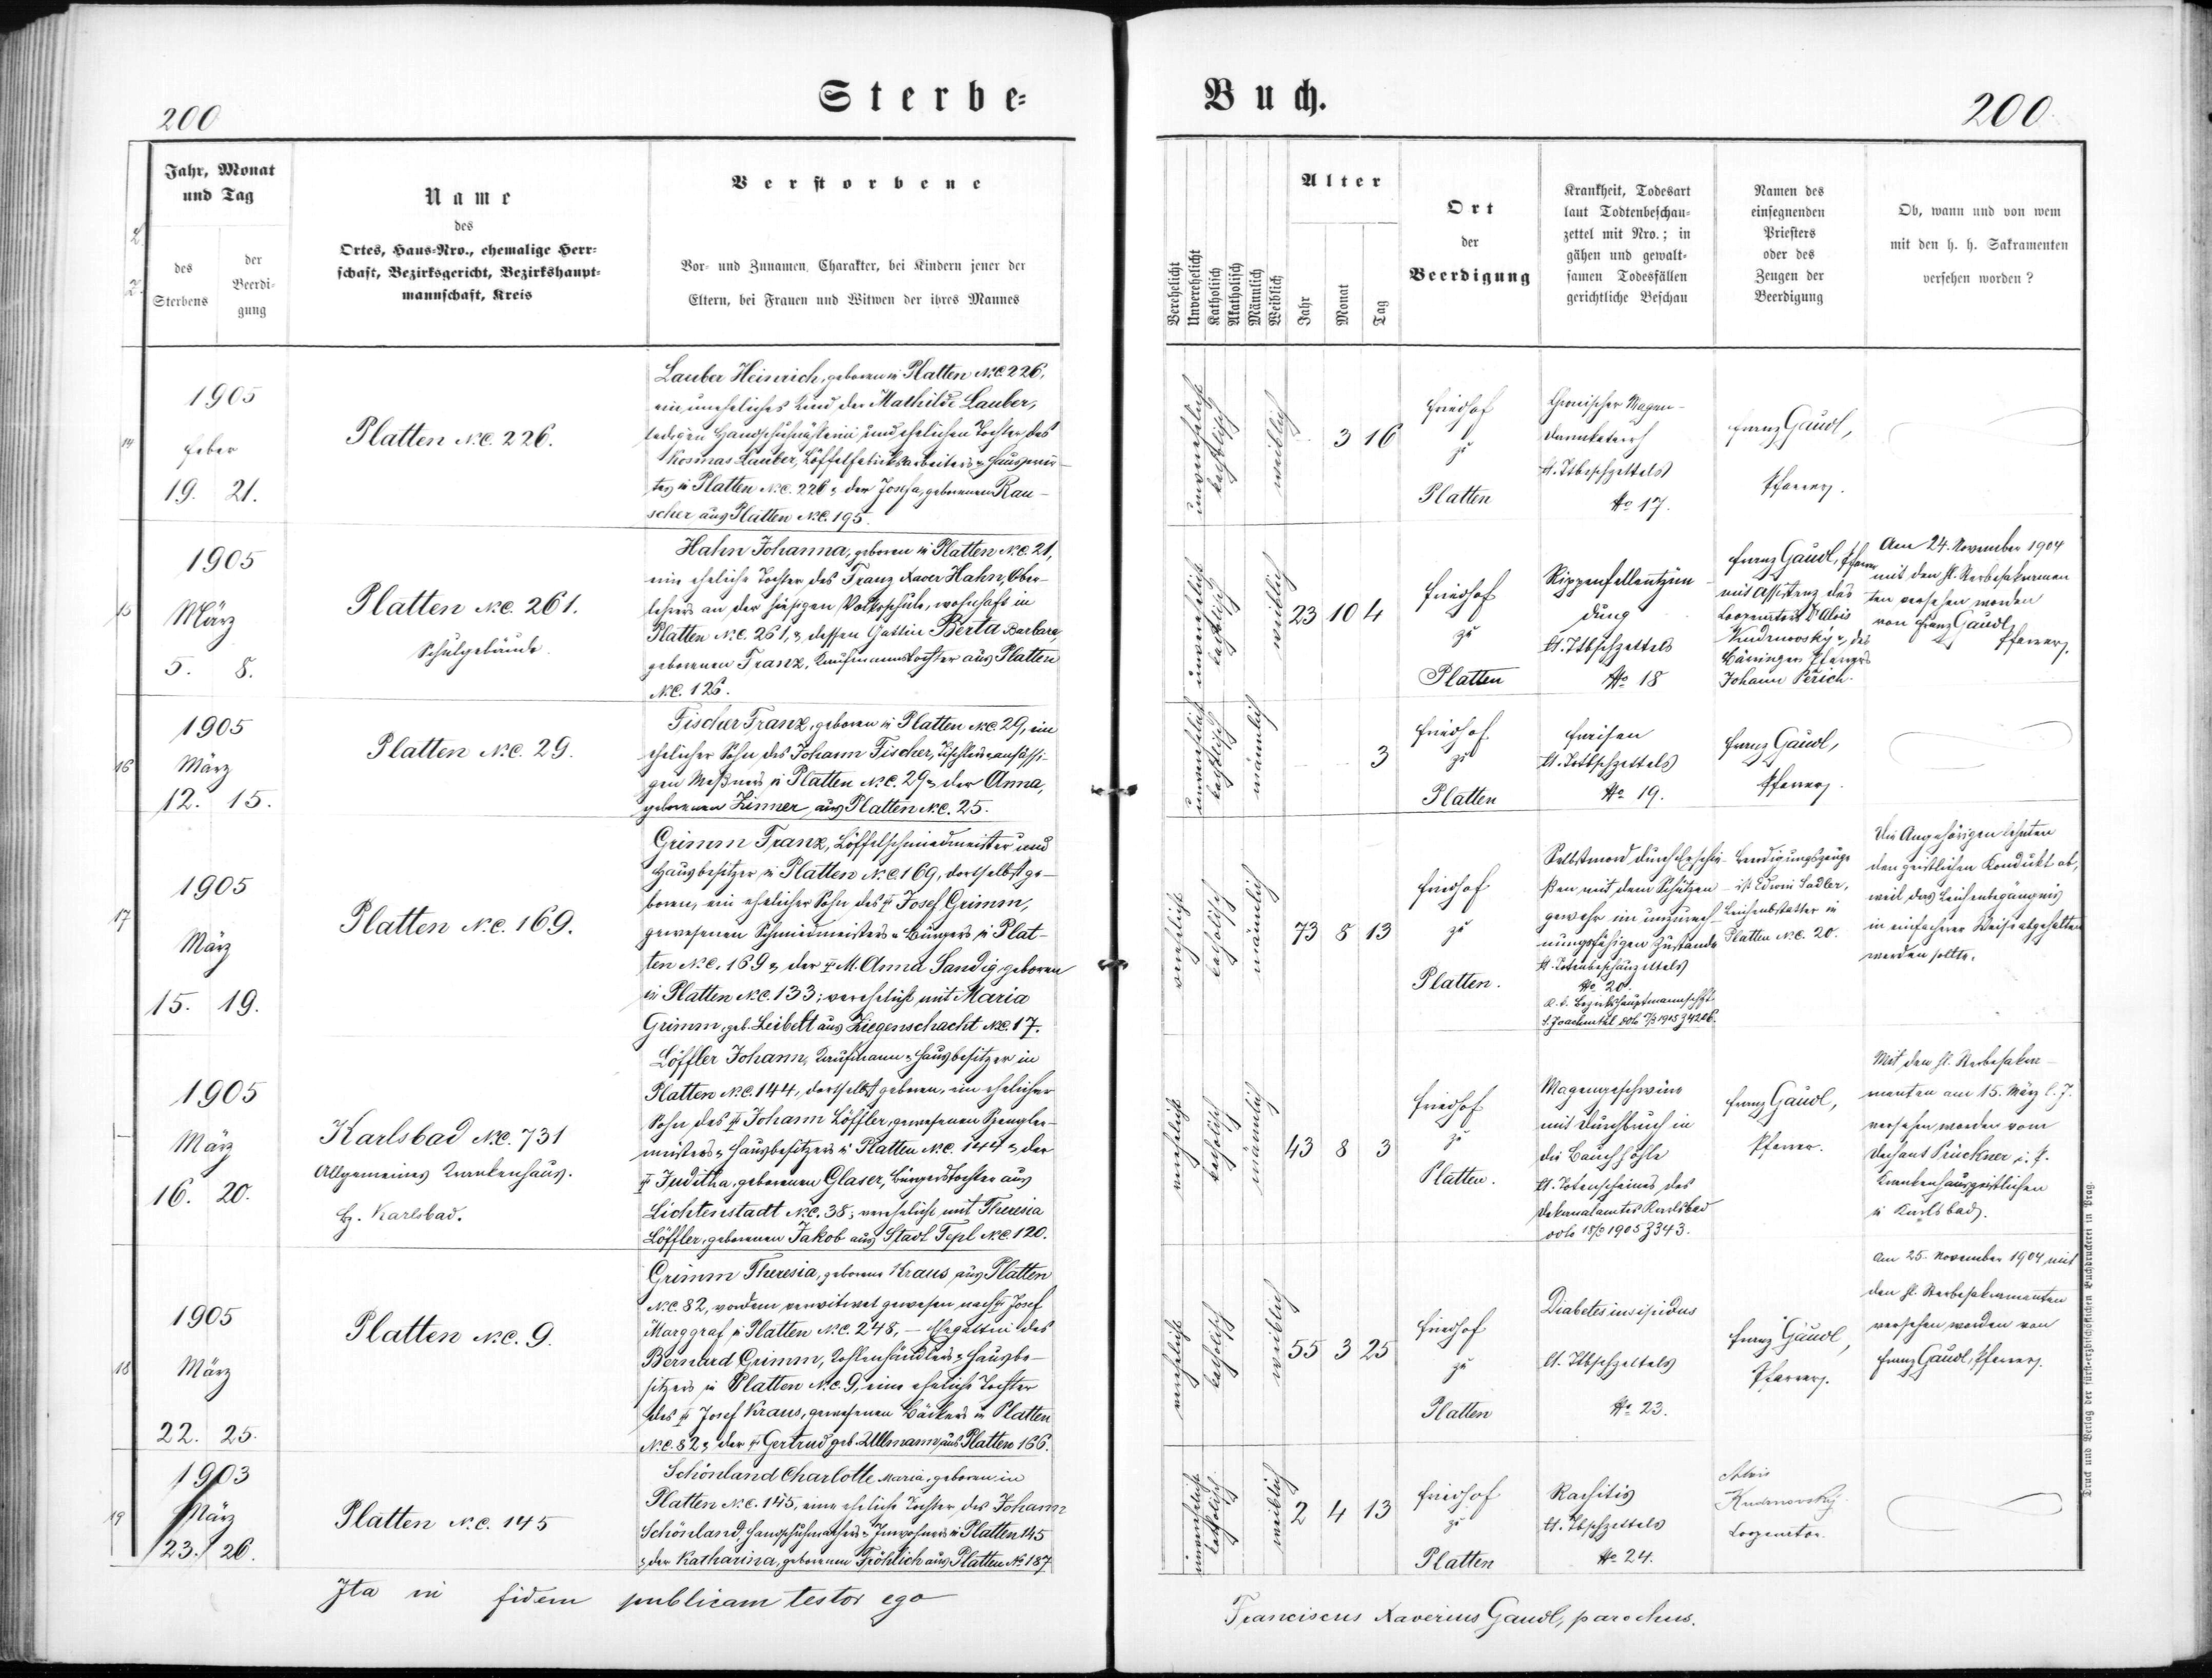 200
Sterbe=
Buch.
200.
L.
Z.
Jahr, Monat
und Tag
des
Sterbens
der
Beerdi-
gung
Name
des
Ortes, Haus-Nro., ehemalige Herr-
schaft, Bezirksgericht, Bezirkshaupt-
mannschaft, Kreis
Verstorbene
Vor- und Zunamen, Charakter, bei Kindern jener der
Eltern, bei Frauen und Witwen der ihres Mannes
Verehelicht
Unverehelicht
Katholisch
Akatholisch
Männlich
Weiblich
Alter
Jahr
Monat
Tag
Ort
der
Beerdigung
Krankheit, Todesart
laut Todtenbeschau-
zettel mit Nro.; in
gähen und gewalt-
samen Todesfällen
gerichtliche Beschau
Namen des
einsegnenden
Priesters
oder des
Zeugen der
Beerdigung
Ob, wann und von wem
mit den h. h. Sakramenten
versehen worden?
14
1905
Feber
19. 21.
Platten N.C. 226.
Lauber Heinrich, geboren in Platten N.C. 226,
ein uneheliches Kind der Mathilde Lauber,
ledigen Handschuhnäherin und ehelichen Tochter des
Kosmas Lauber, Löffelfabriksarbeiters u. Hauswir-
tes in Platten N.C. 226 u. der Josefa, geborenen Rau-
scher aus Platten N.C. 195.
unverehelicht
katholisch
weiblich
3 16
Friedhof
zu
Platten
Chronischer Magen-
darmkatarrh
lt. Ttbschzettels
No 17.
Franz Gaudl,
Pfarrer.
15
1905
März
5. 8.
Platten N.C. 261.
Schulgebäude.
Hahn Johanna, geboren in Platten N.C. 21,
eine eheliche Tochter des Franz Xaver Hahn, Ober-
lehrers an der hiesigen Volksschule, wohnhaft in
Platten N.C. 261, u. dessen Gattin Berta Barbara
geborenen Franz, Kaufmannstochter aus Platten
N.C. 126.
unverehelicht
katholisch
weiblich
23 10 4
Friedhof
zu
Platten
Rippenfellentzün-
dung
lt. Ttbschzettels
No 18
Franz Gaudl, Pfarrer
mit Assistenz des
Cooperators P. Alois
Kudrnovský u. des
Bäringer Pfarrers
Johann Perich.
Am 24. November 1904
mit den hl. Sterbesakramen
ten versehen worden
von Franz Gaudl,
Pfarrer.
16
1905
März
12. 15.
Platten N.C. 29.
Fischer Franz, geboren in Platten N.C. 29, ein
ehelicher Sohn des Johann Fischer, Tischlers u. ansässi-
gen Meßners in Platten N.C. 29 u. der Anna,
geborenen Zinner, aus Platten N.C. 25.
unverehelicht
katholisch
männlich
3
Friedhof
zu
Platten
Fraisen
lt. Totbschzettels
No 19.
Franz Gaudl,
Pfarrer.
17
1905
März
15. 19.
Platten N.C. 169.
Grimm Franz, Löffelschmiedmeister und
Hausbesitzer in Platten N.C. 169, dortselbst ge-
boren, ein ehelicher Sohn des † Josef Grimm,
gewesenen Schmiedmeisters u. Bürgers in Plat-
ten N.C. 169 u. der † M. Anna Sandig, geboren
in Platten N.C. 133; verehelicht mit Maria
Grimm, geb. Leibelt aus Ziegenschacht N.C. 17.
verehelicht
katholisch
männlich
73 8 13
Friedhof
zu
Platten.
Selbstmord durch Erschie-
ßen mit dem Schützen-
gewehr im unzurech-
nungsfähigen Zustande
lt. Totenbeschauzettels
No 20.
k.k. Bezirkshauptmannschaft
St. Joachimthal ddto 17/3 1905 Z 4206.
Beerdigungszeuge
ist Edwin Sadler,
Leichenbestatter in
Platten N.C. 20.
Die Angehörigen lehnten
den geistlichen Kondukt ab,
weil das Leichenbegängnis
in einfacherer Weise abgehalten
werden sollte.
1905
März
16. 20.
Karlsbad N.C. 731
Allgemeines Krankenhaus.
Bz. Karlsbad.
Löffler Johann, Kaufmann u. Hausbesitzer in
Platten N.C. 144, dortselbst geboren, ein ehelicher
Sohn des † Johann Löffler, gewesenen Spengler-
meisters u. Hausbesitzers in Platten N.C. 144 u. der
† Juditha, geborenen Glaser, Bürgerstochter aus
Lichtenstadt N.C. 38; verehelicht mit Theresia
Löffler, geborenen Jakob aus Stadt Tepl N.C. 120.
verehelicht
katholisch
männlich
43 8 3
Friedhof
zu
Platten.
Magengeschwür
mit Durchbruch in
die Bauchhöhle
lt. Totenscheines des
Dekanalamtes Karlsbad
ddto 18/3 1905 Z 343.
Franz Gaudl,
Pfarrer.
Mit den hl. Sterbesakra-
menten am 15. März l. J.
versehen worden vom
Dechant Prückner i. P.
Krankenhausgeistlichen
in Karlsbad.
18
1905
März
22. 25.
Platten N.C. 9.
Grimm Theresia, geborene Kraus, aus Platten
N.C. 82, vordem verwitwet gewesen nach † Josef
Marggraf in Platten N.C. 248, - Ehegattin des
Bernard Grimm, Kohlenhändlers u. Hausbe-
sitzers in Platten N.C. 9, eine eheliche Tochter
des † Josef Kraus, gewesenen Bäckers in Platten
N.C. 82 u. der † Gertrud geb. Ullmann aus Platten 166.
verehelicht
katholisch
weiblich
55 3 25
Friedhof
zu
Platten
Diabetes insipidus
lt. Ttbschzettels
No 23.
Franz Gaudl,
Pfarrer.
Am 25. November 1904 mit
den hl. Sterbesakramenten
versehen worden von
Franz Gaudl, Pfarrer.
19
1903
März
23. 26.
Platten N.C. 145
Schönland Charlotte Maria, geboren in
Platten N.C. 145, eine eheliche Tochter des Johann
Schönland, Handschuhmachers u. Inwohners in Platten 145
u. der Katharina, geborenen Fröhlich aus Platten No 187
unverehelicht
katholisch
weiblich
2 4 13
Friedhof
zu
Platten
Rachitis
lt. Tbschzettels
No 24.
Alois
Kudrnovský
Cooperator.
Ita in fidem publicam testor ego
Franciscus Xaverius Gaudl, parochus.
Druck und Verlag der fürst-erzbischöflichen Buchdruckerei in Prag.